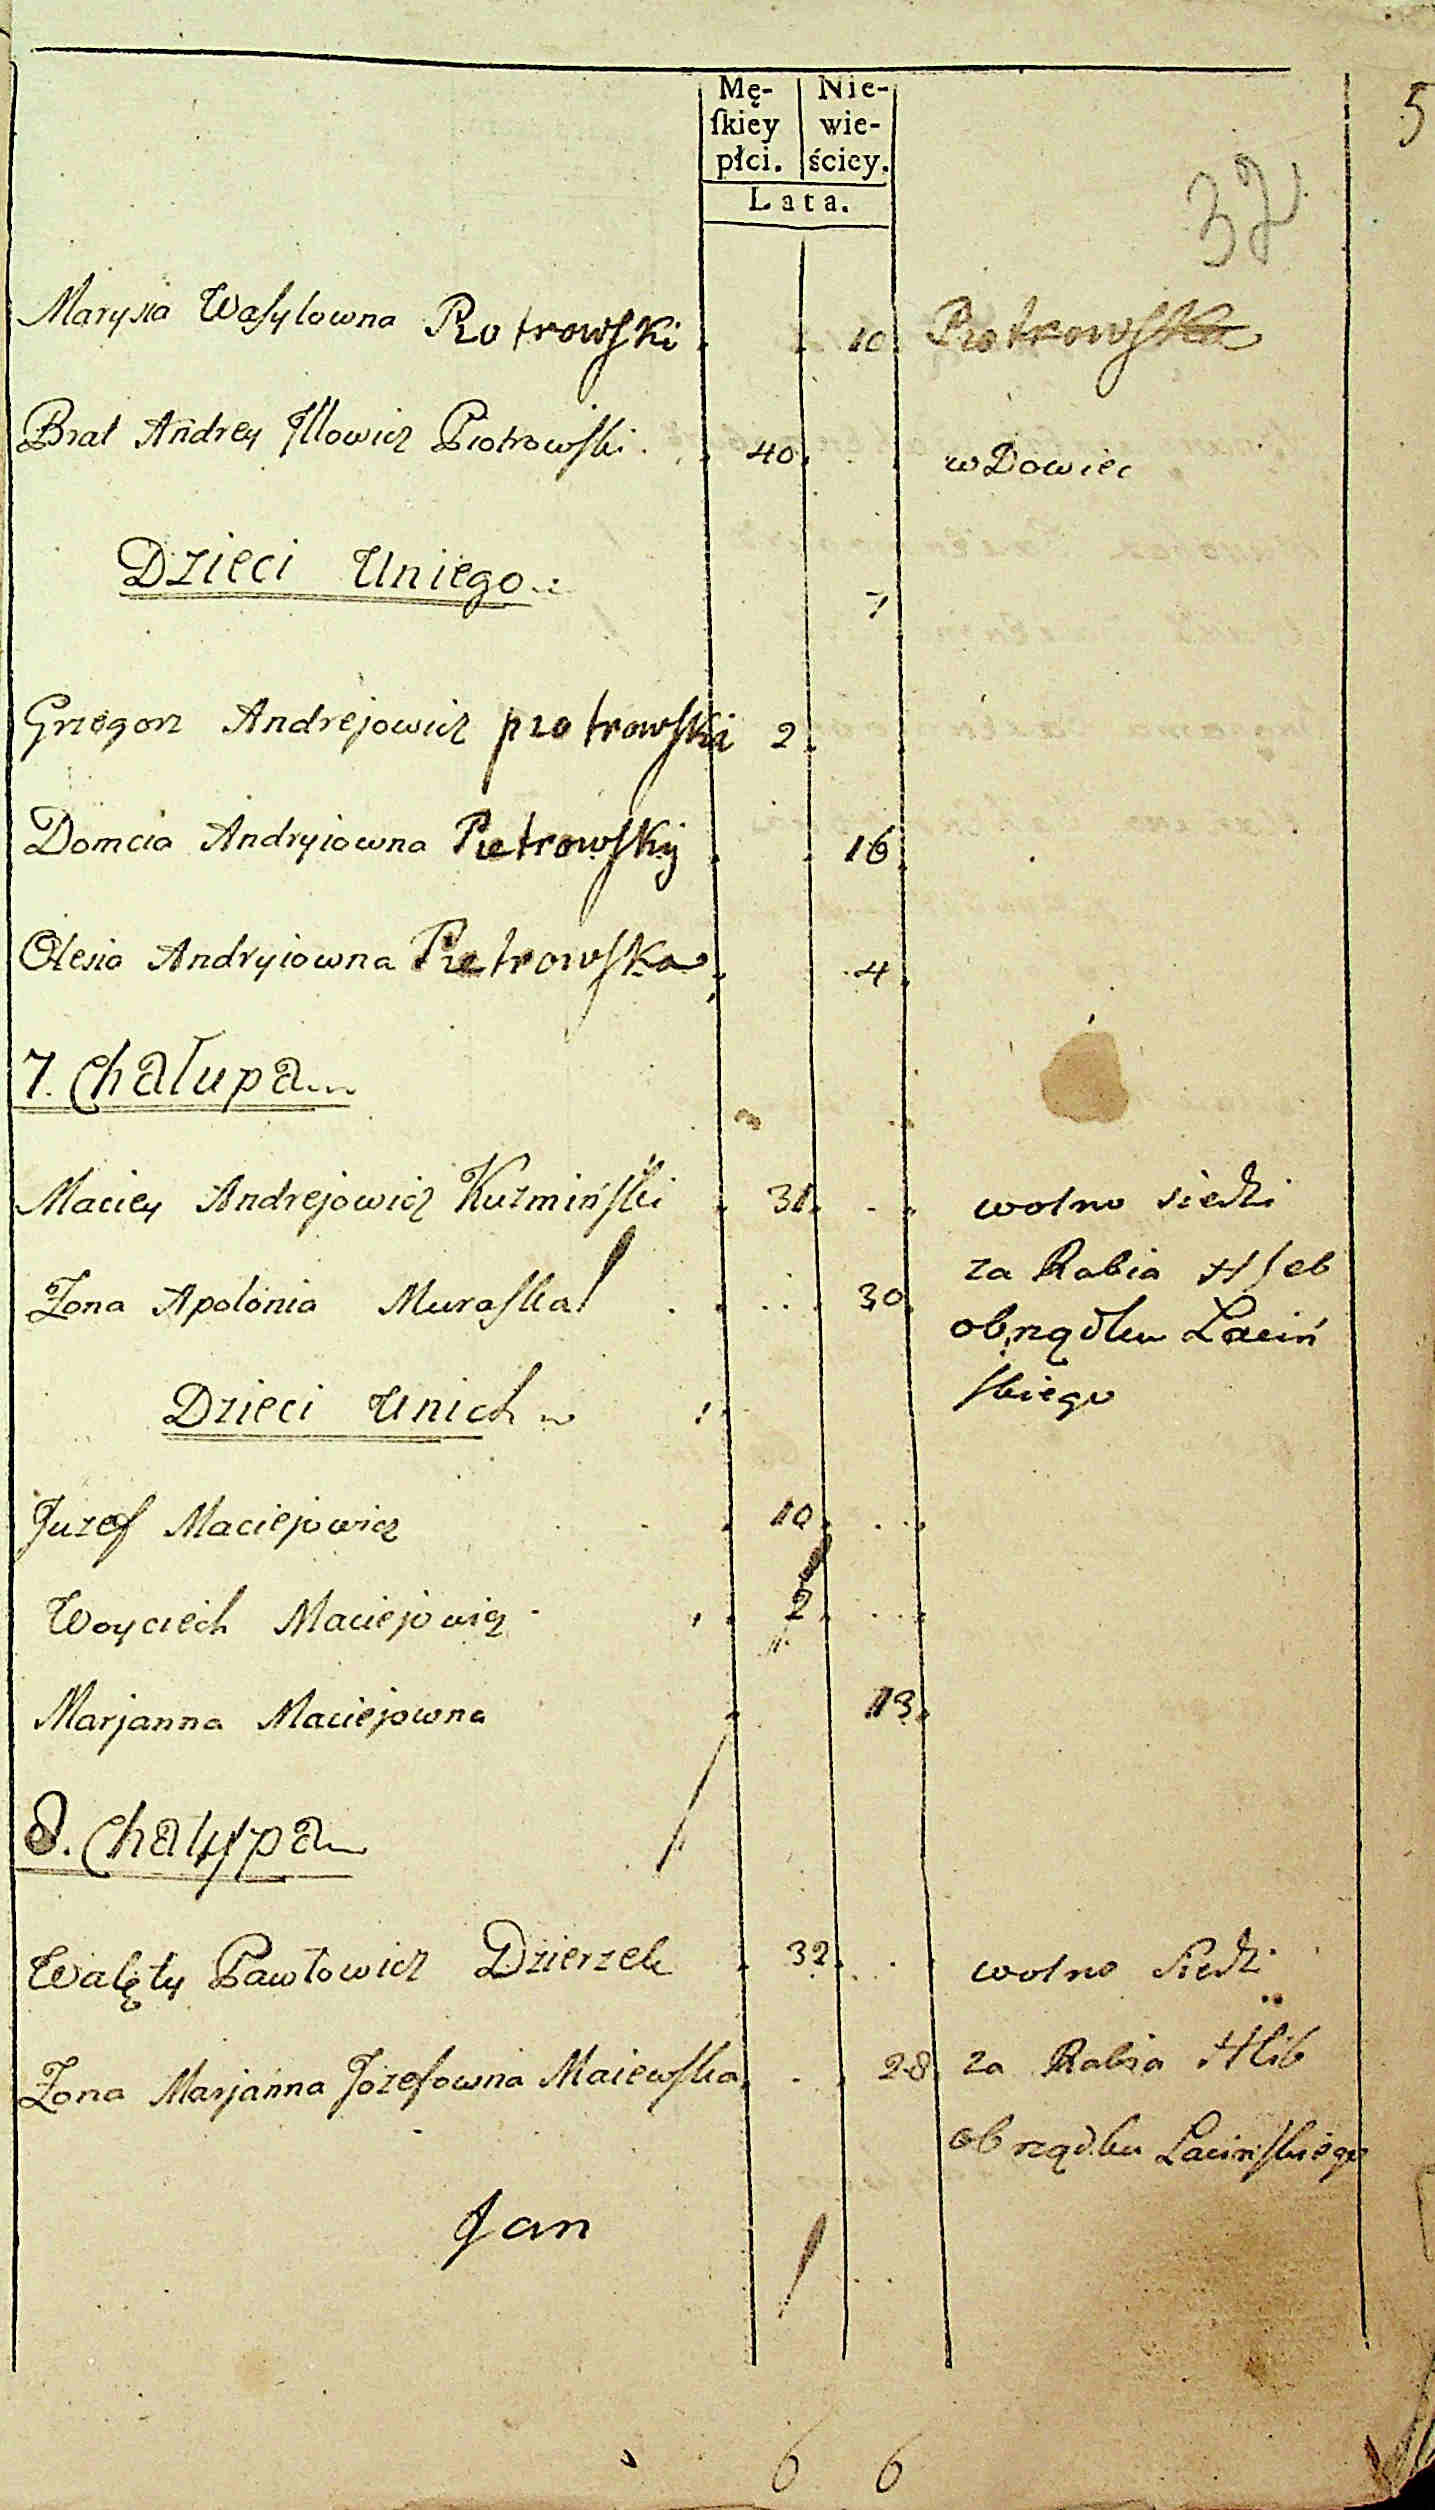 5
Mę- Nie-
ſkiey wie-
płci. ściey.
Lata.
32
Marysia Wasylowna Piotrowski 10 Piotrowska
Brat Andrey Illowicz Piotrowski 40 wDowiec
Dzieci Uniego
7
Grzegorz Andrejowicz piotrowski 2
Domcia Andryiowna Pietrowskij 16
Olesia Andryiowna Pietrowska 4
7. Chałupa
Maciey Andrejowicz Kuzmiński 31 wolno siedzi
Zona Apolonia Muraska 30 za Rabia Hleb
obrządku Laciń
skiego
Dzieci Unich
Juzef Maciejowicz 10
Woyciech Maciejowicz 2
Marjanna Maciejowna 13
8. Chałupa
Walęty Pawłowicz Dzierzek 32 wolno siedzi
Zona Marjanna Jozefowna Maiewska 28 za Rabia Hlib
obrządku Lacinskiego
Jan
6 6